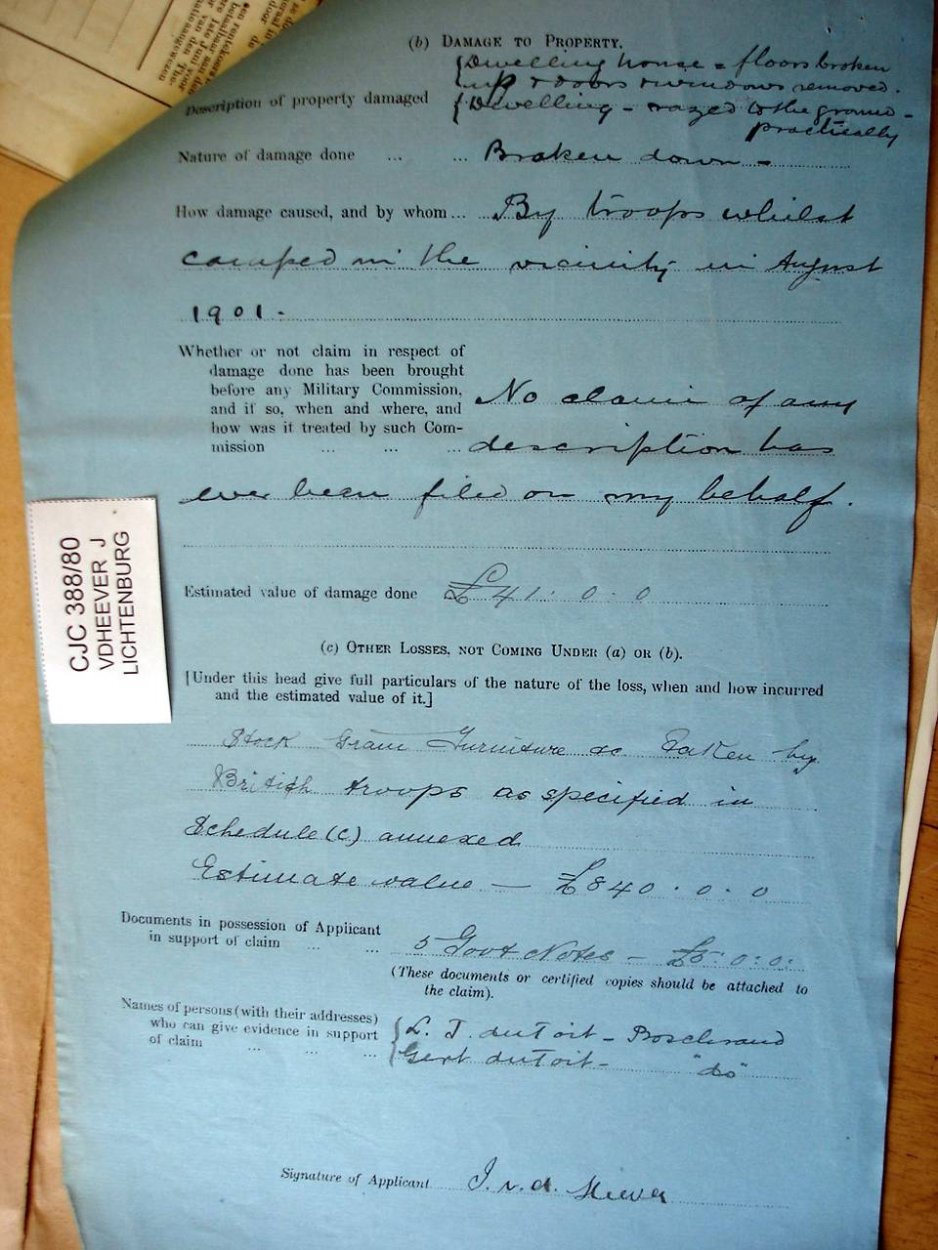 (b) DAMAGE TO PROPERTY.
Dwelling house = floors broken
up & doors & windows removed.
Description of property damaged
Dwelling - razed to the ground -
practically
Nature of damage done ... ... Broken down -
How damage caused, and by whom ... By troops whilst
camped in the vicinity in August
1901.
Whether or not claim in respect of
damage done has been brought
before any Military Commission,
and if so, when and where, and No claim of any
how was it treated by such Com-
mission ... ... ... description has
ever been filed on my behalf.
Estimated value of damage done £41: 0 : 0
(c) OTHER LOSSES, NOT COMING UNDER (a) OR (b).
[Under this head give full particulars of the nature of the loss, when and how incurred
and the estimated value of it.]
Stock Grain Furniture &c Taken by
British troops as specified in
Schedule (C) annexed
Estimate value — £840 . 0 . 0
Documents in possession of Applicant
in support of claim ... ... 5 Govt Notes - £5: 0: 0:
(These documents or certified copies should be attached to
the claim).
Names of persons (with their addresses)
who can give evidence in support L. J. du Toit - Boschrand
of claim ... ... ... Gert du Toit - "do"
Signature of Applicant J. v. d. Heever
CJC 388/80
VDHEEVER J
LICHTENBURG